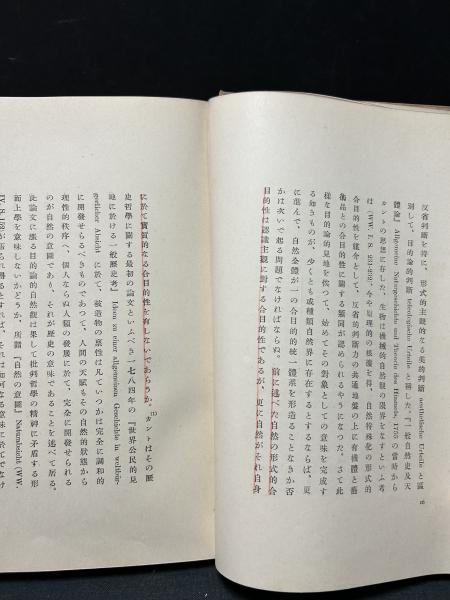 反省判斷を特に、形式的主觀的なる美的判斷 aesthetische Urteile と區
別して、目的論的判斷 teleologische Urteile と稱した。『一般自然史及天
體論』Allgemeine Naturgeschichte und Theorie des Himmels, 1755 の當時から
カントの思想に存した、生物は機械的自然觀の限界をなすといふ考
は (WW. I. S. 231-232)、今や原理的の根據を得、自然特殊化の形式的
合目的性を媒介として、反省的判斷力の共通地盤の上に有機體と藝
術品との合目的性に關する類同が認められるやうになつた。さて此
樣な目的論的見地を俟つて、始めてその對象としての意味を完成す
る如きものが、少くとも或種類自然界に存在するとするならば、更
に進んで、自然全體が一の合目的的統一體系を形造ることなきか否
かは次いで起る問題でなければならぬ。前に述べた自然の形式的合
目的性は認識主觀に對する合目的性であるが、更に自然がそれ自身
6
に於て實質的なる合目的性を有しないであらうか。(1) カントはその歷
史哲學に關する最初の論文といふべき一七八四年の『世界公民的見
地に於ける一般歷史考』Ideen zu einer allgemeinen Geschichte in weltbür-
gerlicher Absicht に於て、被造物の稟性は凡ていつかは完全に調和的
に開發せらるべきものであつて、人間の天賦もその自然的狀態から
理性的秩序へ、個人ならぬ人類の發展に於て、完全に開發せられる
のが自然の意圖であり、それが歷史の意味であることを述べて居る。
此論文に漲る目的論的自然觀は果して批判哲學の精神に矛盾する形
而上學を意味しないかどうか、所謂『自然の意圖』Naturabsicht (WW.
IV. S. 152) が語られ得るとすれば、それは如何なる意味に於てでなけ